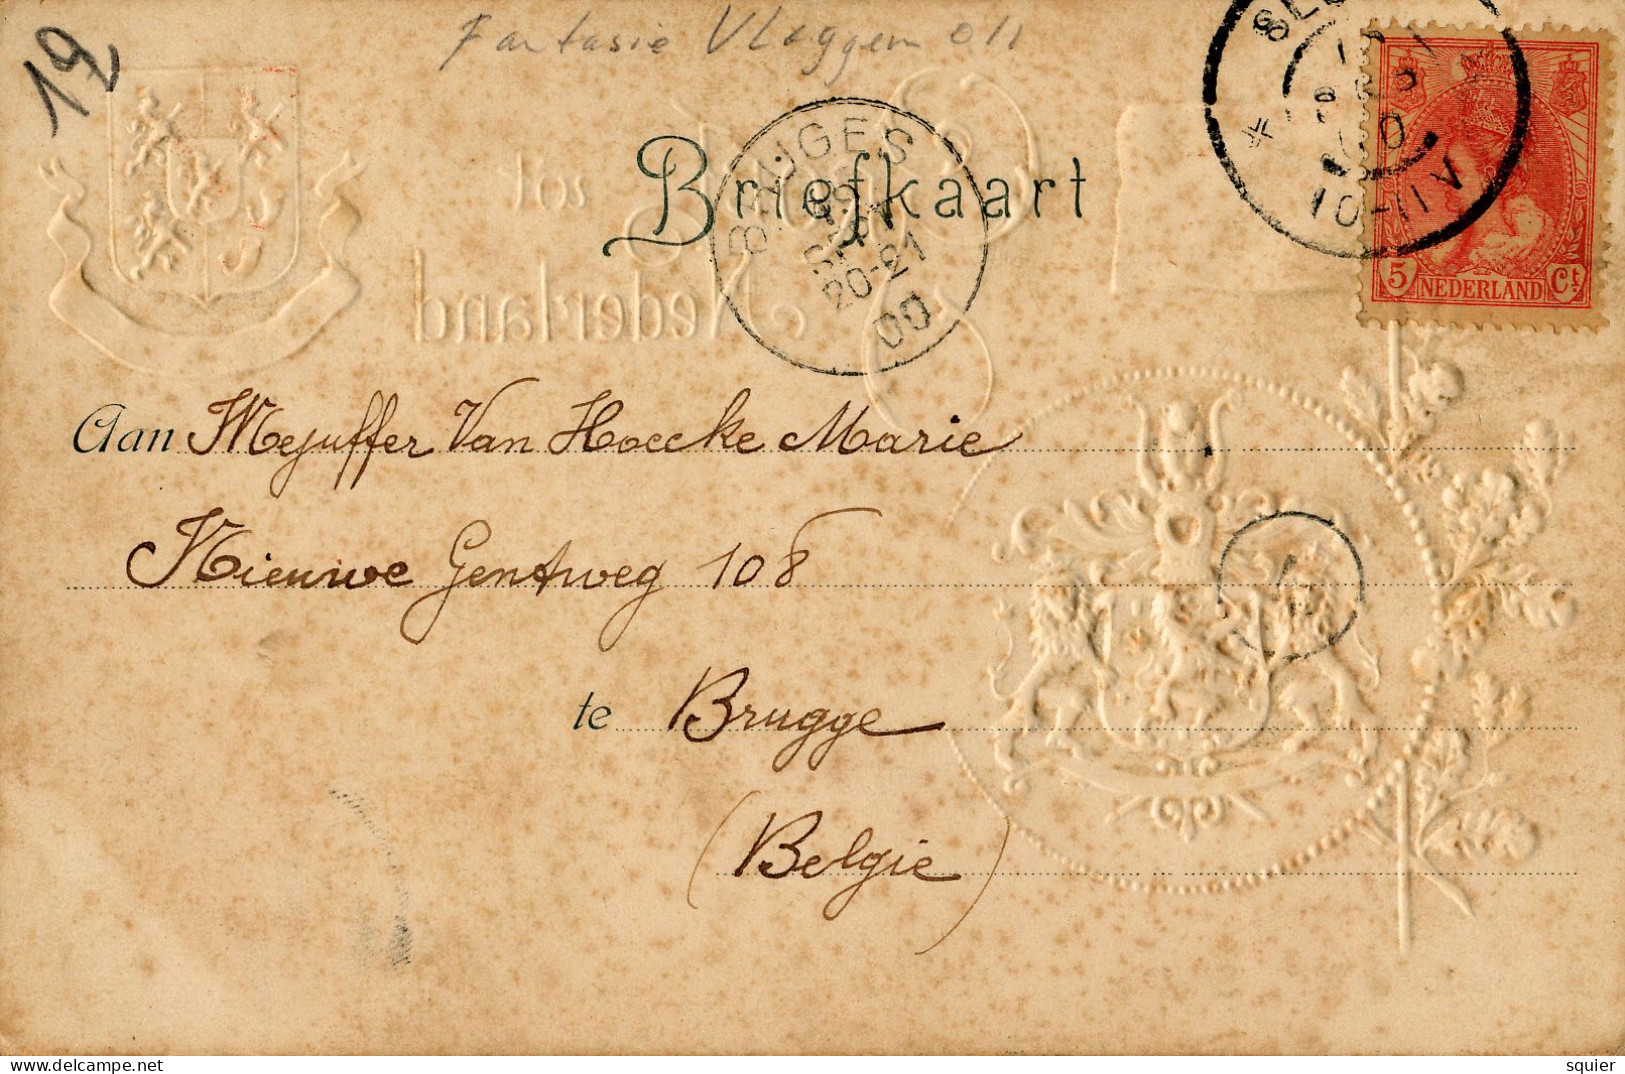 Fantasie Vlaggen
12
Briefkaart
BRUGES
SEPT
20-21
00
10-11V
5 NEDERLAND Ct.
tot
Nederland
Aan Mejuffer Van Hoecke Marie
Nieuwe Gentweg 108
te Brugge
(Belgie)
squier